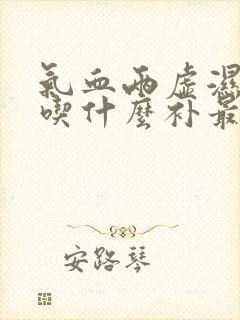 氣血两虚濕
喫什麼补最
安路琴